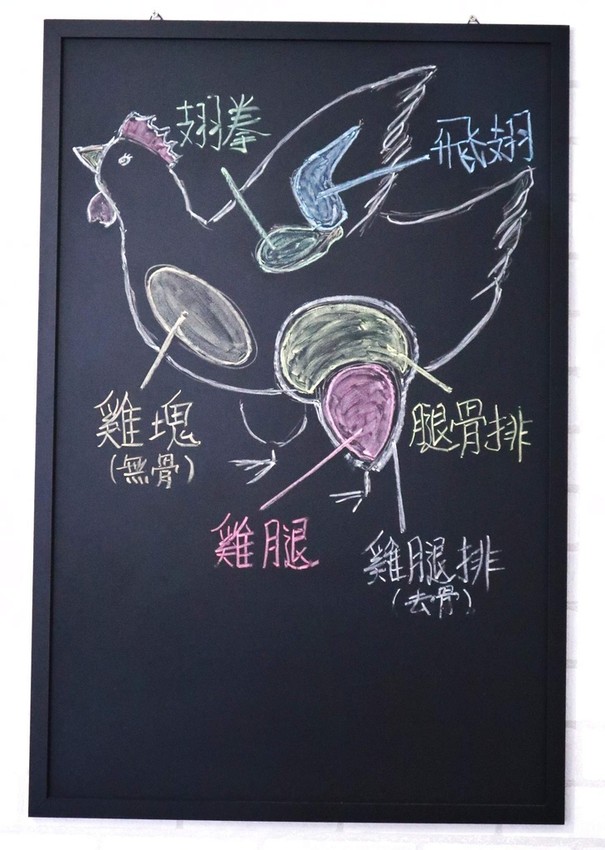 翅拳
飛翅
雞塊
(無骨)
腿骨排
雞腿
雞腿排
(去骨)